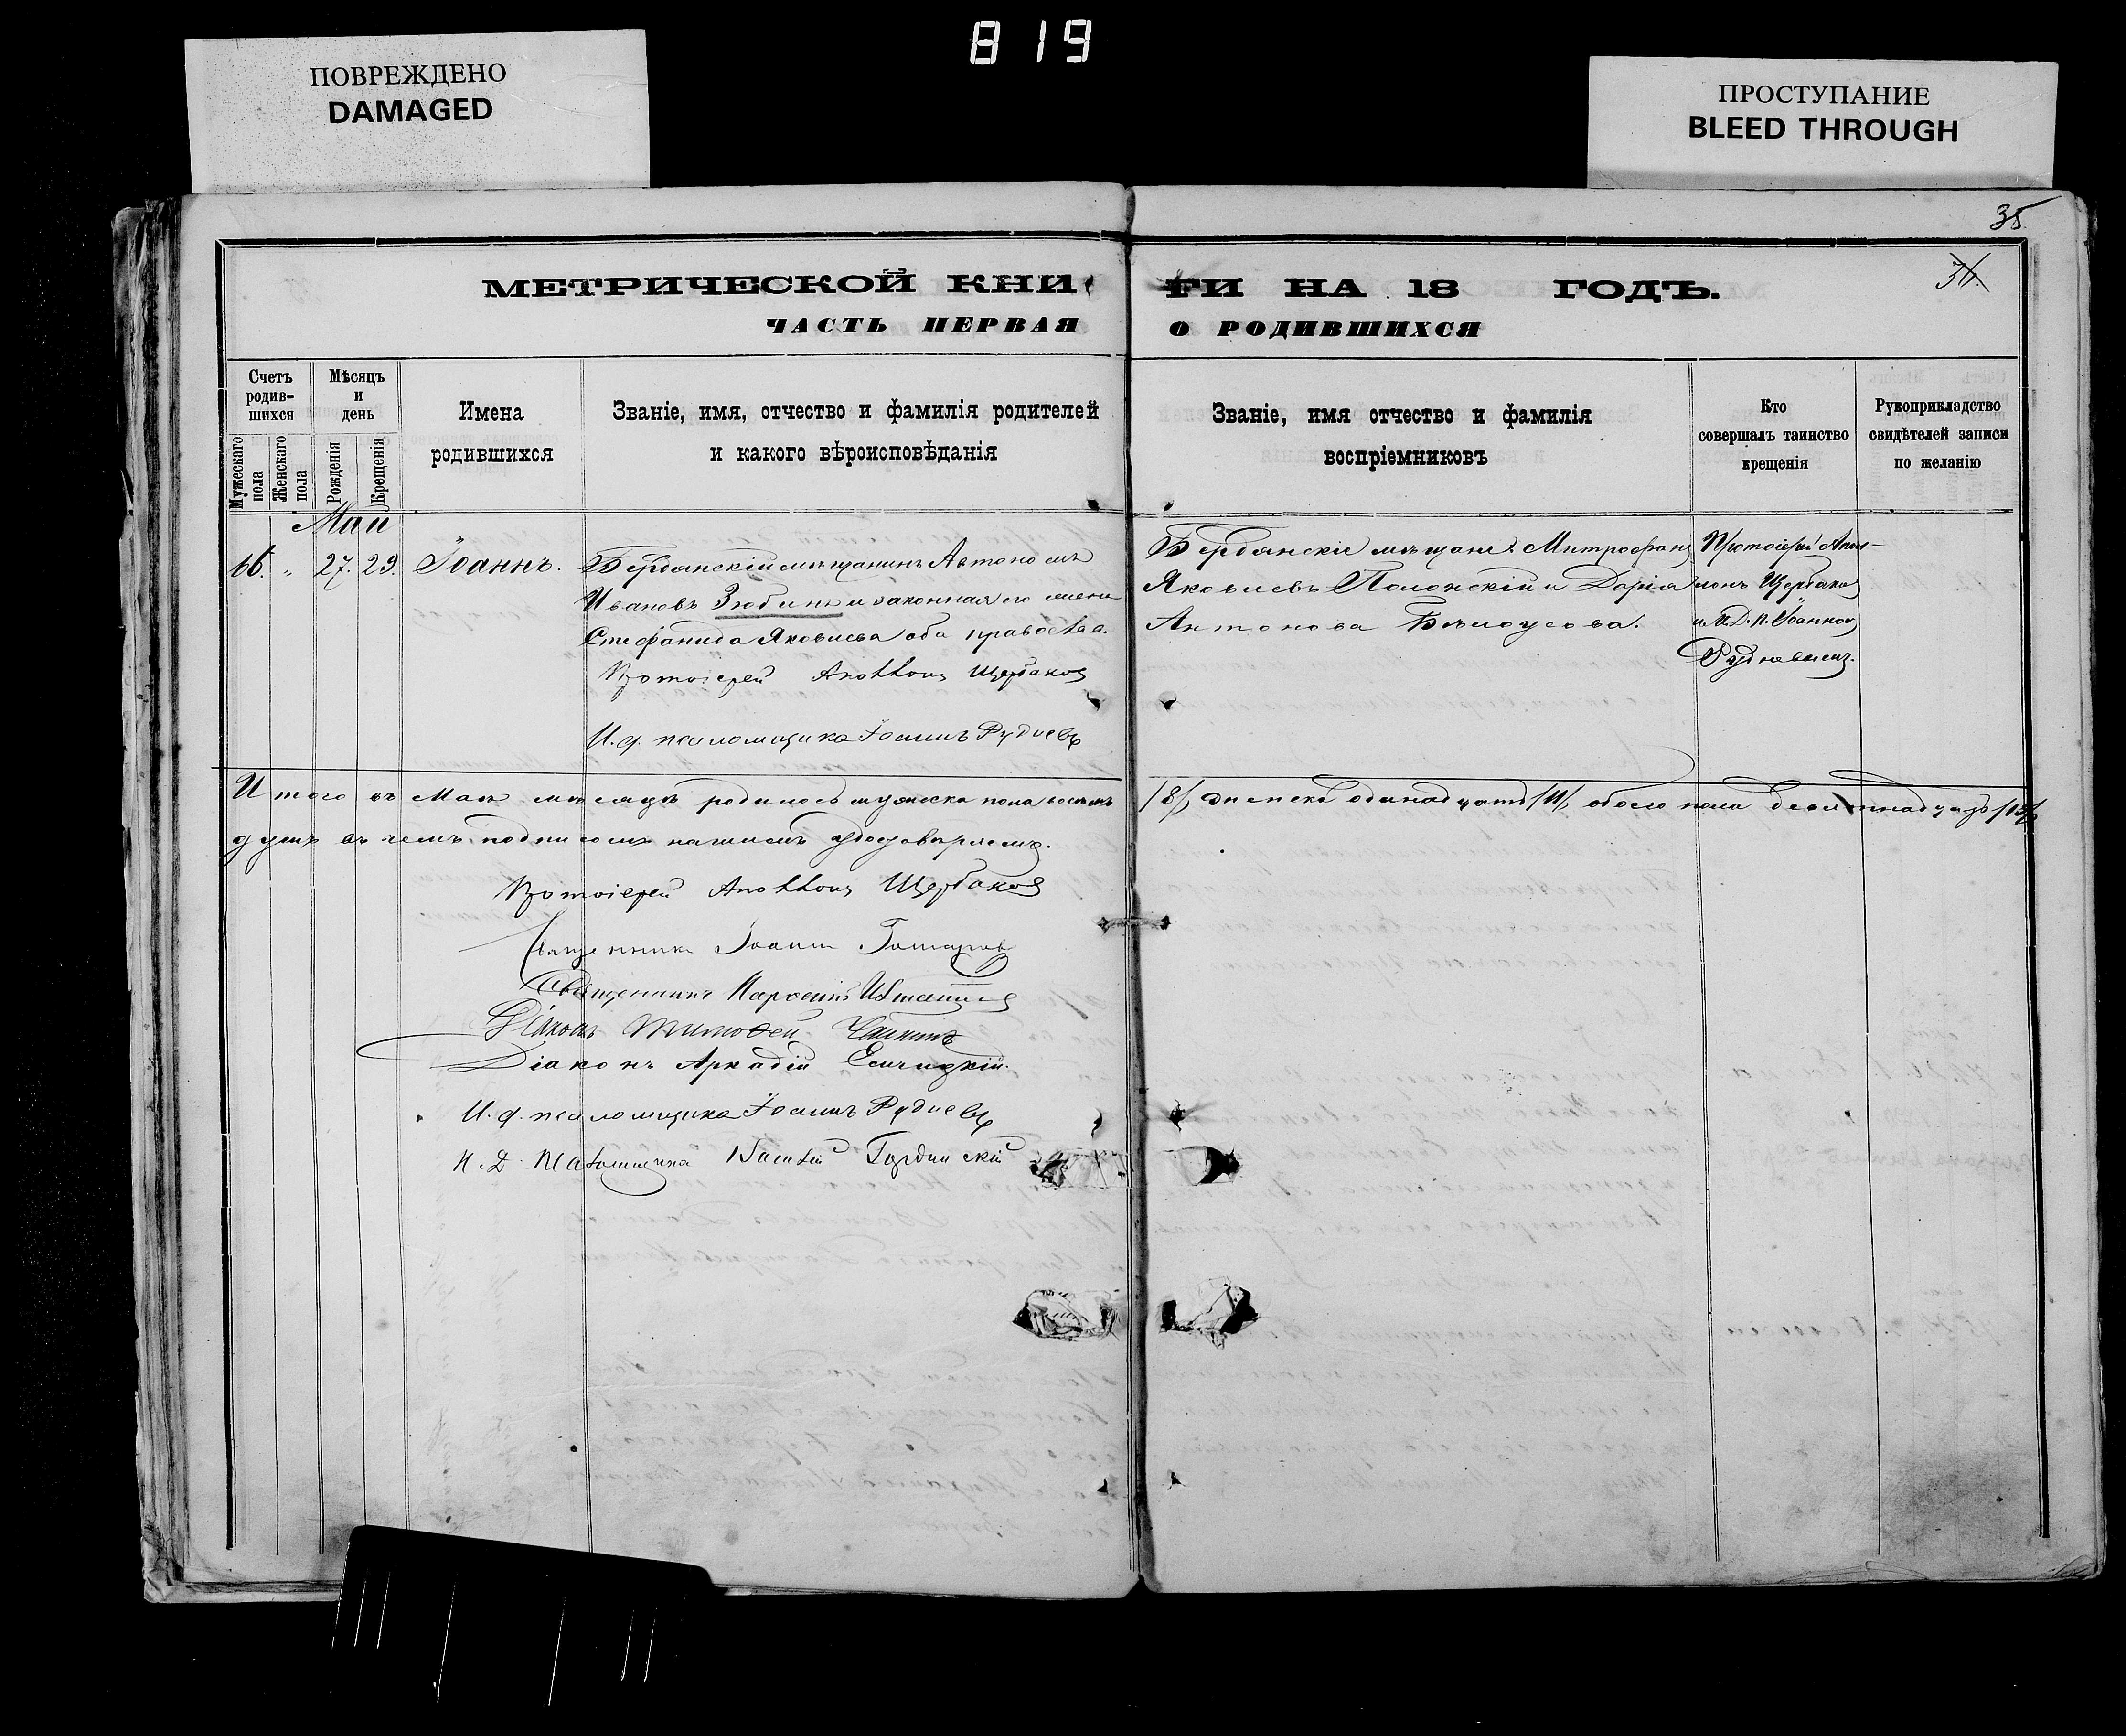 819
ПОВРЕЖДЕНО
DAMAGED
ПРОСТУПАНИЕ
BLEED THROUGH
35
36.
МЕТРИЧЕСКОЙ КНИ
ГИ НА 18 ГОДЪ.
ЧАСТЬ ПЕРВАЯ
О РОДИВШИХСЯ
Счетъ
родив-
шихся
Мужескаго
пола
Женскаго
пола
Мѣсяцъ
и
день
Рожденія
Крещенія
Имена
родившихся
Званіе, имя, отчество и фамилія родителей
и какого вѣроисповѣданія
Званіе, имя отчество и фамилія
воспріемниковъ
Кто
совершалъ таинство
крещенія
Рукоприкладство
свидѣтелей записи
по желанію
Май
16. " 27. 29. Іоаннъ.
Бердянскій мѣщанинъ Автономъ
Ивановъ и законная его жена
Стефанида Яковлева оба правосл.
Протоіерей Аполлонъ Щербаковъ
И. д. псаломщика Іоаннъ Рудневъ
Бердянскіе мѣщане: Митрофанъ
Яковлевъ Полонскій и Дарія
Антонова Бѣлоусова.
Протоіерей Апол-
лонъ Щербаковъ
и И. Д. п. Іоанномъ
Рудневымъ.
Итого въ Маѣ мѣсяцѣ родилось мужеска пола восемь
/8/, женска одинадцать /11/, обоего пола девятнадцать /19/
душъ въ чемъ подписомъ нашимъ удостовѣряемъ.
Протоіерей Аполлонъ Щербаковъ
Священникъ Іоаннъ
Священникъ
Діаконъ Тимофей
Діаконъ Аркадій
И. д. псаломщика Іоаннъ Рудневъ
И. Д. Псаломщика Василій